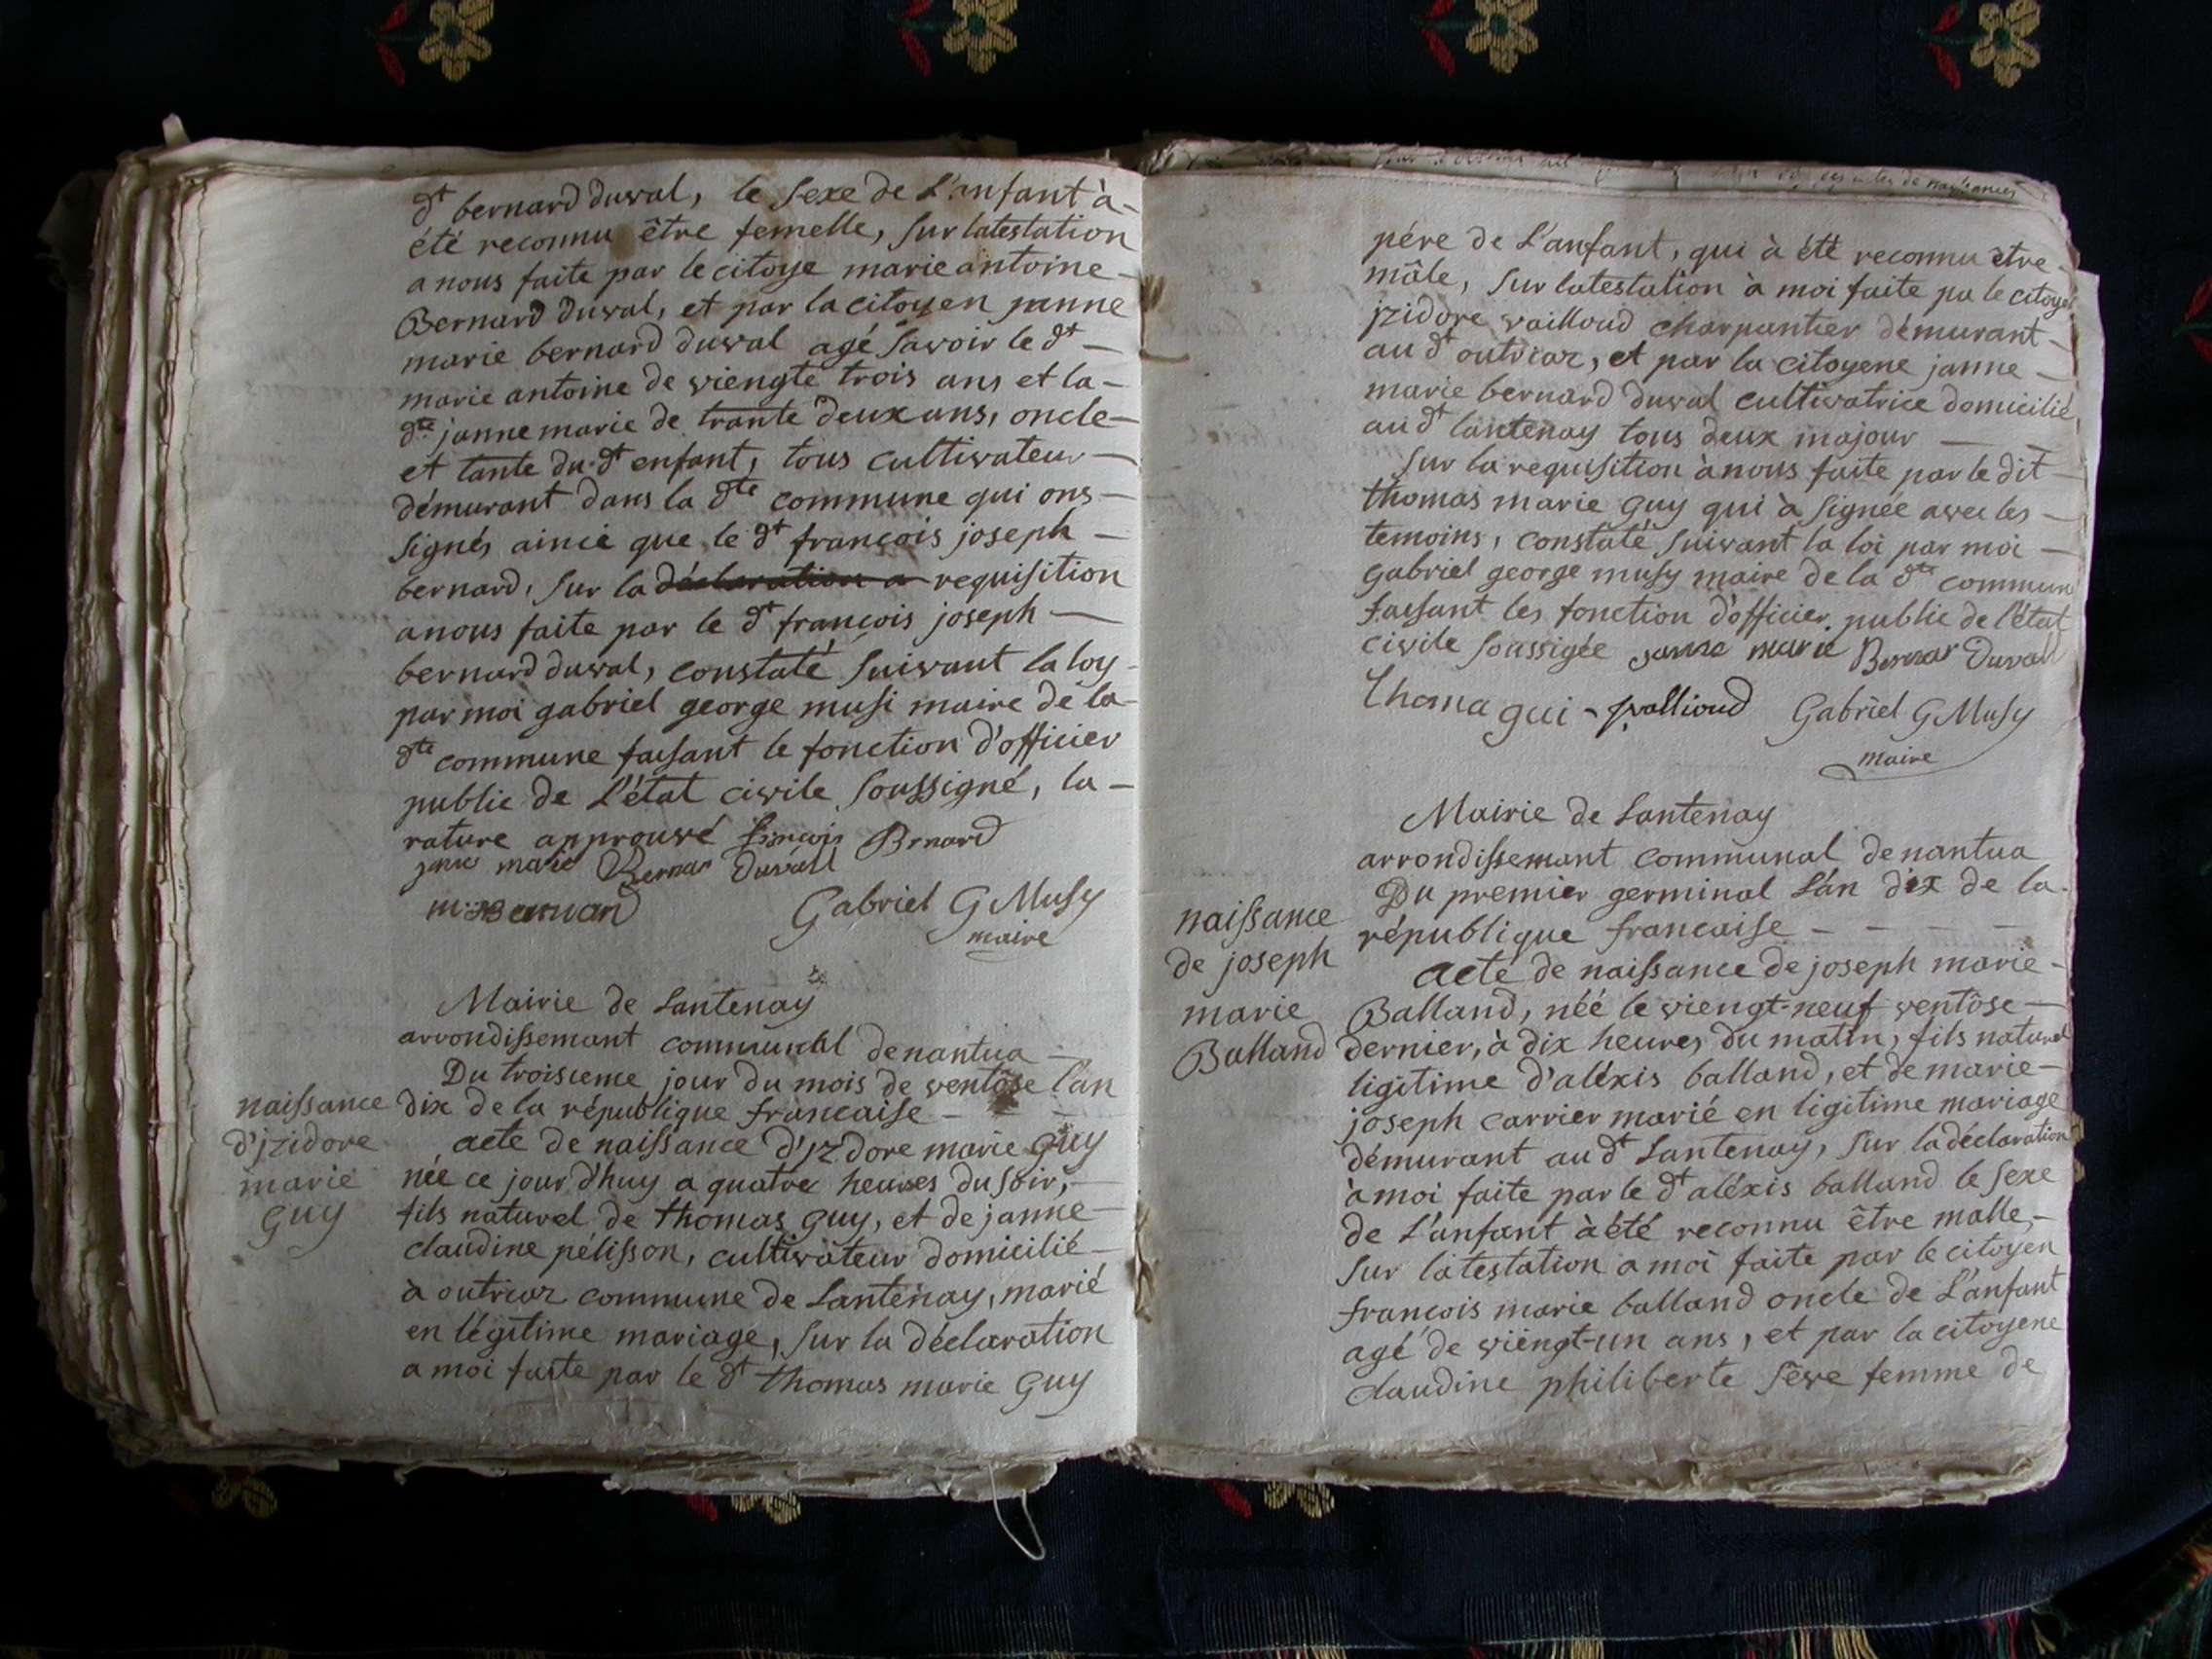 dt bernard duval, le sexe de L'anfant à-
été reconnu être femelle, sur latestation
a nous faite par le citoye marie antoine-
Bernard duval, et par la citoyen janne
marie bernard duval agé savoir le dt-
marie antoine de viengte trois ans et la-
dte janne marie de trante deux ans, oncle-
et tante du dt enfant, tous cultivateur-
démurant dans la dte commune qui ons-
signés aincie que le dt francois joseph-
bernard, sur la déclaration a requisition
a nous faite par le dt francois joseph-
bernard duval, constaté suivant la loy-
par moi gabriel george musi maire de la-
dte commune faisant le fonction d'officier
public de L'état civile soussigné, la-
rature approuvé francois Brnard
janne marie Bernar Duvall
Gabriel G Musy
maire
Mairie de Lantenay
arrondissemant communal de nantua-
Du troisieme jour du mois de ventôse l'an
dix de la république francaise-
naissance
d'jzidore
marie
Guy
acte de naissance d'jzdore marie Guy
née ce jour d'huy a quatre heures du soir,-
fils naturel de thomas Guy, et de janne-
claudine pélisson, cultivateur domicilié-
à outriaz commune de Lantenay, marié
en légitime mariage, sur la déclaration
a moi faite par le dt thomas marie Guy
pére de L'anfant, qui à été reconnu être-
mâle, sur latestation à moi faite pa le citoyen
jzidore vailloud charpantier démurant-
au dt outriaz, et par la citoyene janne-
marie bernard duval cultivatrice domicilié,
au dt lantenay tous deux majour-
sur la requisition à nous faite par le dit-
thomas marie Guy qui à signée avec les-
temoins, constaté suivant la loi par moi-
Gabriel george musy maire de la dte commune
faisant les fonction d'officier public de l'état
civile soussigée janne marie Bernar Duvall
thoma gui - Gabriel G Musy
maire
Mairie de Lantenay
arrondissemant communal de nantua
Du premier germinal L'an dix de la-
république francaise - - - -
naissance
de joseph
marie
Balland
acte de naissance de joseph marie-
Balland, néé le viengt-neuf ventôse-
dernier, à dix heures du matin, fils naturel
ligitime d'aléxis balland, et de marie-
joseph carrier marié en ligitime mariage
démurant au dt Lantenay, sur la déclaration
à moi faite par le dt aléxis balland le sexe
de L'anfant à été reconnu être malle,-
sur latestation a moi faite par le citoyen
francois marie balland oncle de L'anfant
agé de viengt-un ans, et par la citoyene
claudine philiberte séve femme de